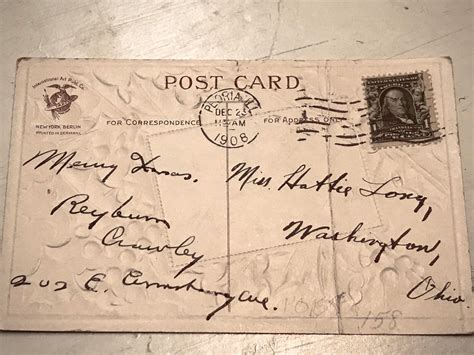 International Art Publ. Co.
NEW YORK BERLIN
PRINTED IN GERMANY
POST CARD
FOR CORRESPONDENCE
FOR ADDRESS ONLY
PEORIA, ILL.
DEC 23
AM
1908
Merry Xmas.
Reyburn
Crawley
202 E. Armstrong Ave.
Miss Hattie Long,
Washington,
Ohio.
158